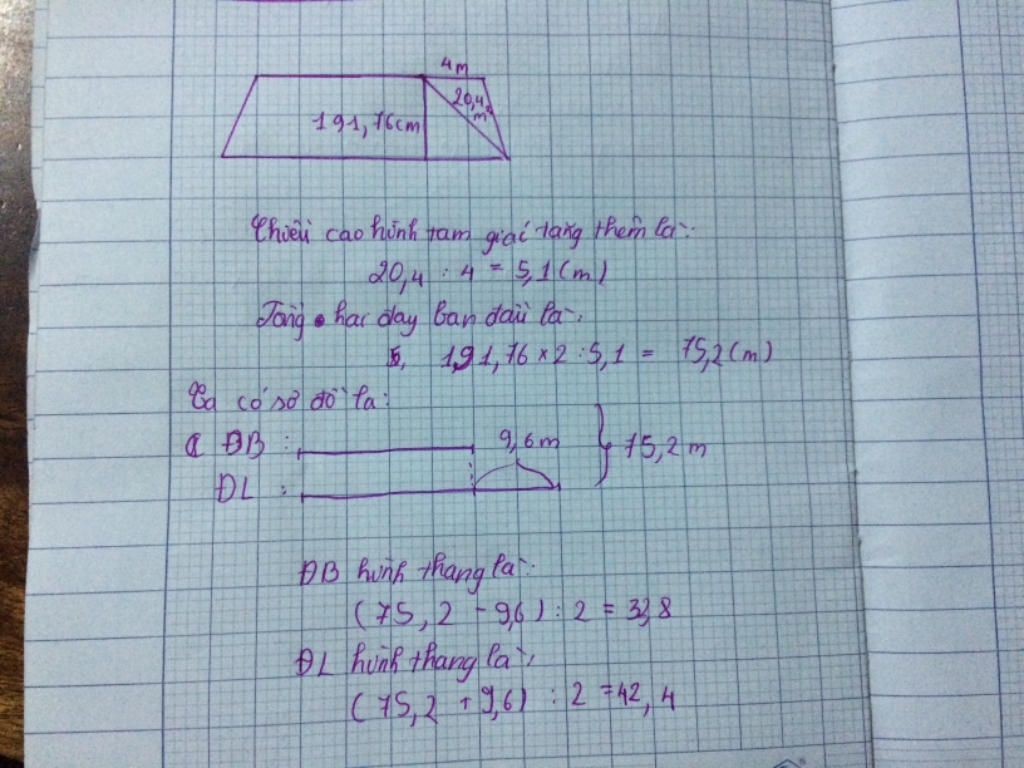 4m
20,4
m
191,76cm
Chiều cao hình tam giác tăng thêm là:
20,4 : 4 = 5,1 (m)
Tổng hai đáy ban đầu là:
191,76 × 2 : 5,1 = 75,2 (m)
Ta có sơ đồ là:
ĐB : 9,6m 75,2m
ĐL :
ĐB hình thang là:
(75,2 - 9,6) : 2 = 32,8
ĐL hình thang là:
(75,2 + 9,6) : 2 = 42,4